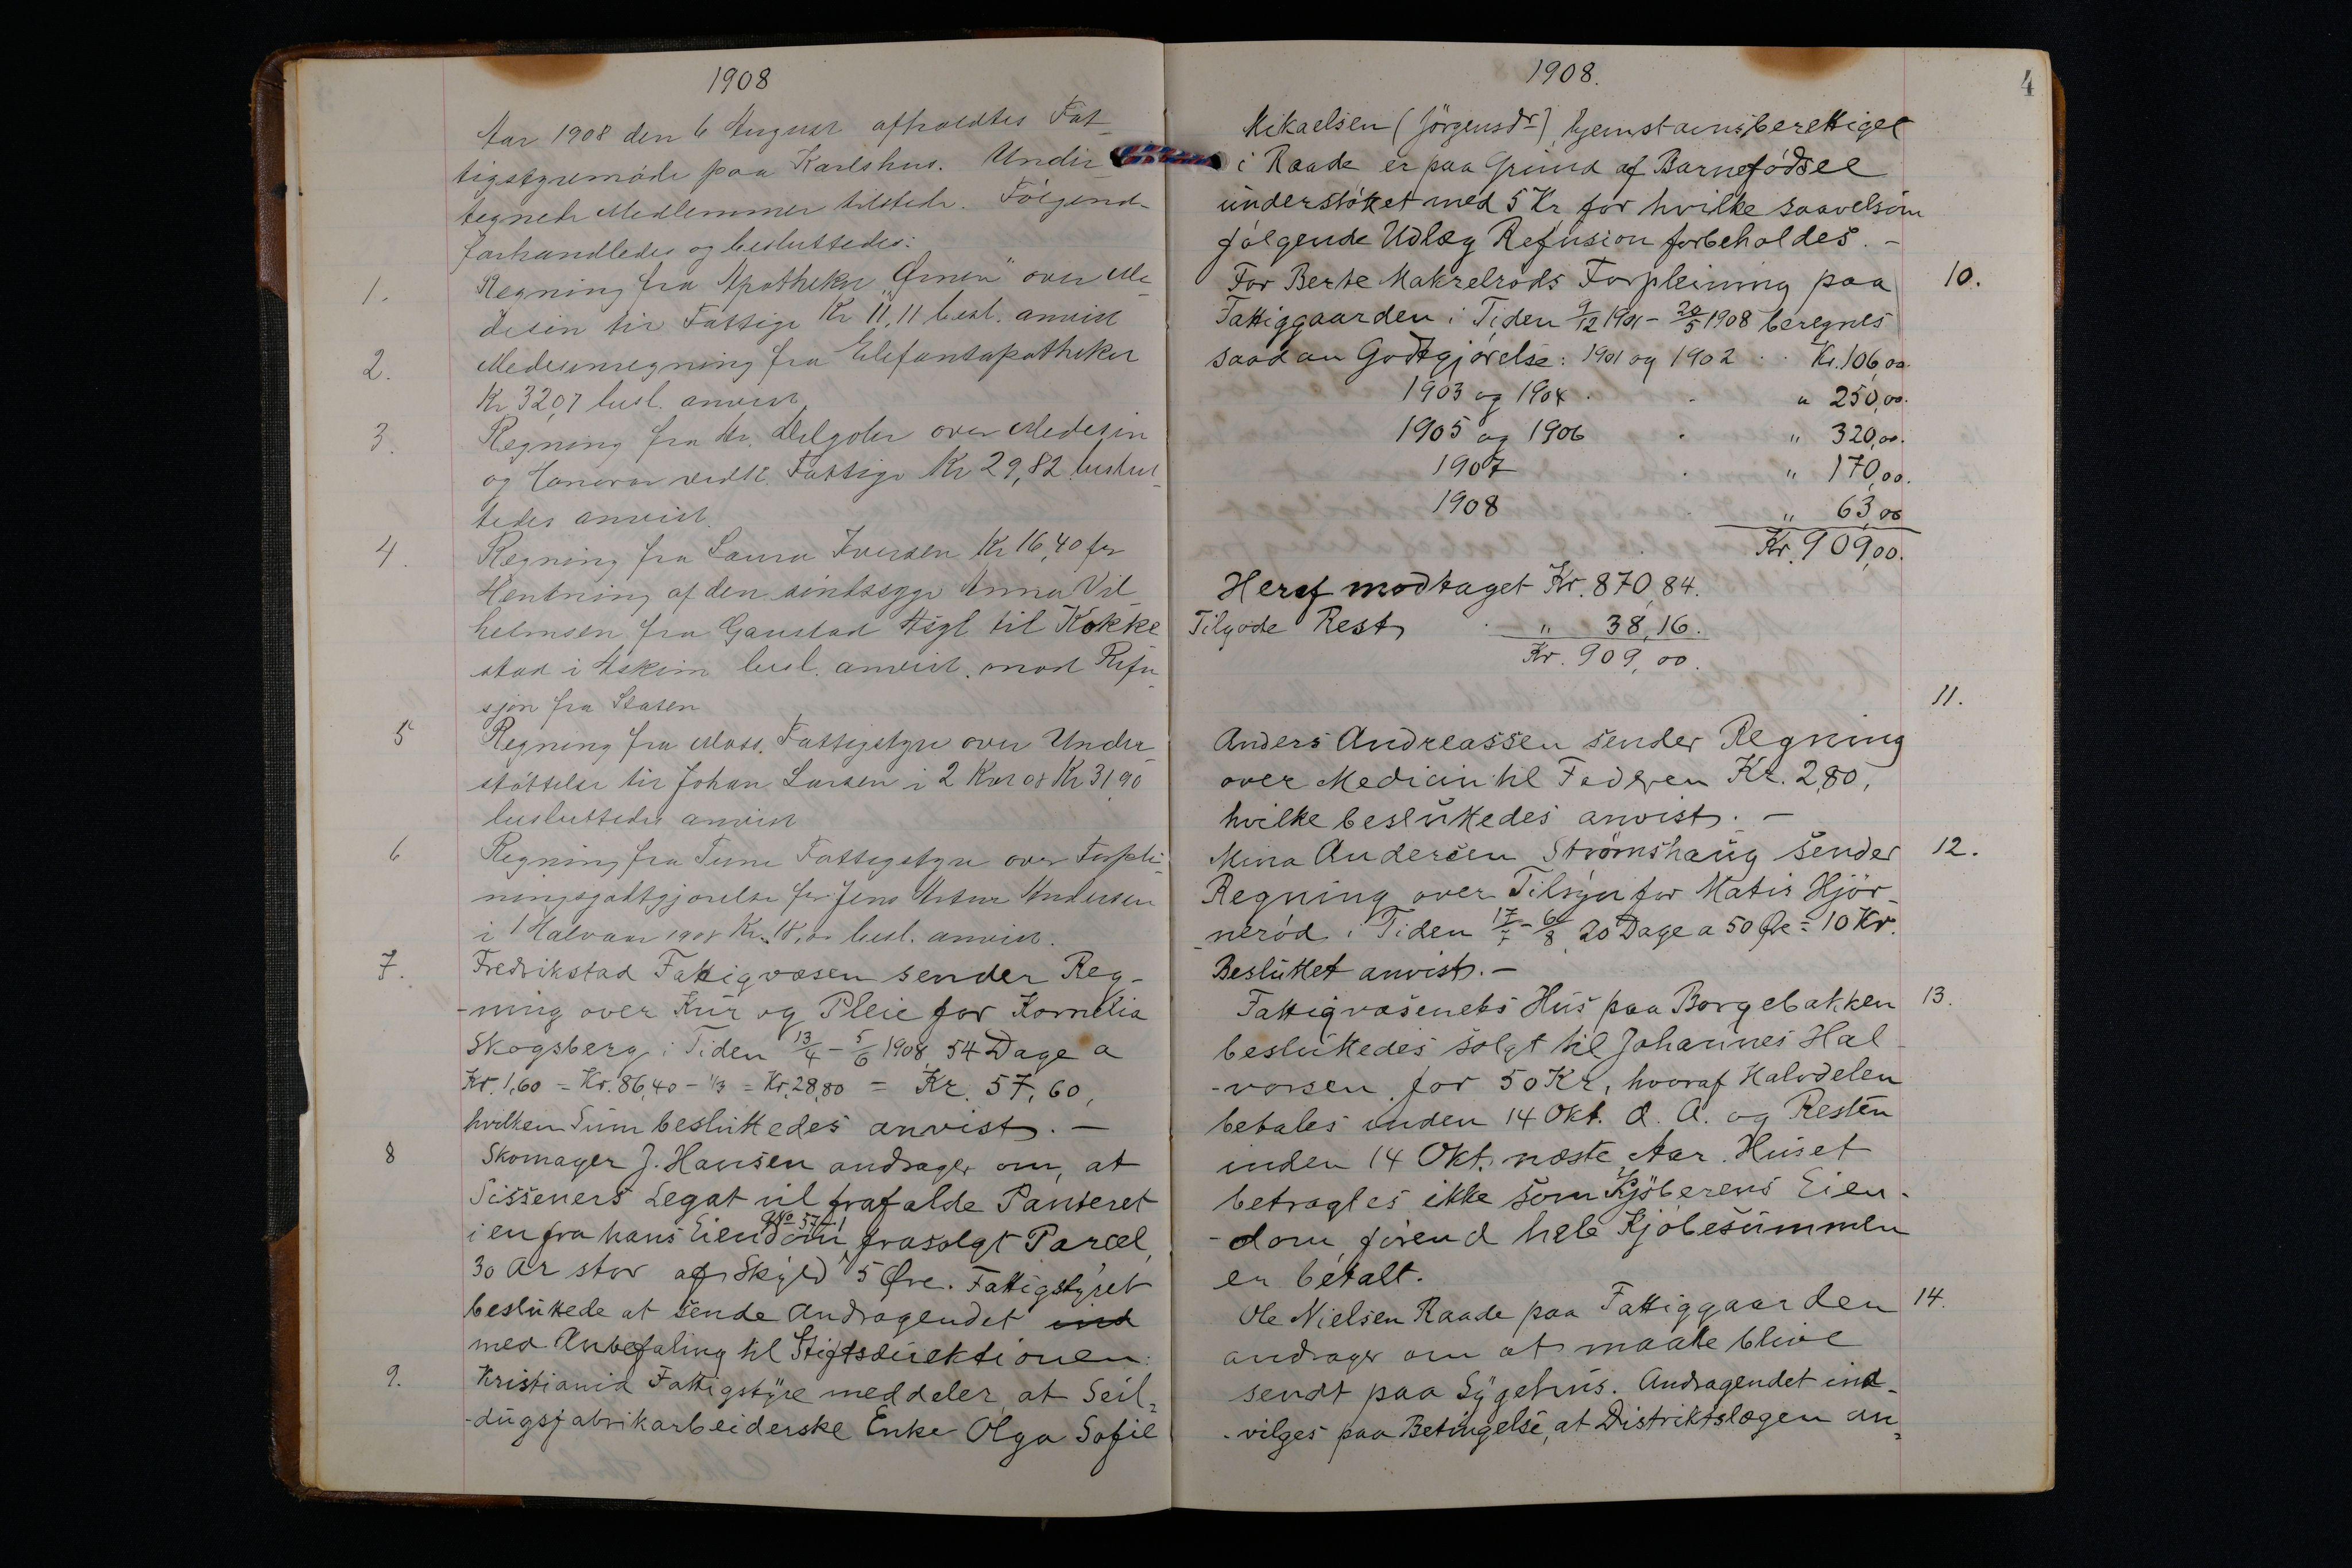 1908
Aar 1908 den 6 August afholdtes Fat-
tigstyremøde paa Karlshus. Under-
tegnede Medlemmer tilstede. Følgende
forhandledes og besluttedes:
1. Regning fra Apotheket „Ørnen" over Me-
desin til Fattige Kr 11,11 besl. anvist
2. Medesinregning fra Elefantapotheket
Kr 32,07 besl. anvist
3. Regning fra Dr. over Medesin
og Honorar vedk. Fattige Kr 29,82 beslut-
tedes anvist.
4. Regning fra Laura Iversen Kr 16,40 for
Hentning af den sindssyge Anna Vil-
helmsen fra Gaustad Asyl til Kokke
stad i Askim besl. anvist. mod Refu-
sjon fra Staten
5 Regning fra Moss. Fattigstyre over Under-
støttelse til Johan Larsen i 2 Kvr 08 Kr 31,90
besluttedes anvist
6 Regning fra Tune Fattigstyre over Forplei-
ningsgodtgjørelse for Jens Artur Andersen
i 1 Halvaar 1908 Kr. 18,00 besl. anvist.
7. Fredrikstad Fattigvæsen sender Reg-
-ning over Kur og Pleie for Kornelia
Skogsberg i Tiden 13/4 - 5/6 1908 54 Dage a
Kr. 1,60 = Kr. 86,40 - 1/3 = Kr. 28,80 = Kr. 57,60,
hvilken Sum besluttedes anvist. -
8 Skomager J. Hansen andrager om, at
Sisseners Legat vil frafalde Panteret
i en fra hans Eiendom GNo 57/1 frasolgt Parcel,
30 Ar stor af Skyld 5 Øre. Fattigstyret
besluttede at sende Andragendet ind
med Anbefaling til Stiftsdirektionen.
9. Kristiania Fattigstyre meddeler at Seil-
-dugsfabrikarbeiderske Enke Olga Sofie
1908.
4
Mikaelsen (Jörgensdr) hjemstavnsberettiget
i Raade er paa Grund af Barnefödsel
understöttet med 5 Kr for hvilke saavelsom
følgende Udlæg Refusion forbeholdes. -
For Berte Makrelröds Forpleining paa 10.
Fattiggaarden i Tiden 9/12 1901 - 20/5 1908 beregnes
saadan Godtgjörelse: 1901 og 1902 . . Kr. 106,00.
1903 og 1904 . . " 250,00.
1905 og 1906 . " 320,00.
1907 . " 170,00.
1908 . " 63,00
Kr. 909,00.
Heraf modtaget Kr. 870,84.
Tilgode Rest . " 38,16.
Kr. 909,00.
11.
Anders Andreassen sender Regning
over Medicin til Kr. 2,80,
hvilke besluttedes anvist. -
Mina Andersen Strömshaug sender 12.
Regning over Tilsyn for Matis Hjör-
-neröd i Tiden 17/7 - 6/8 20 Dage a 50 Øre = 10 Kr.
Besluttet anvist. -
Fattigvæsenets Hus paa Borgebakken 13.
besluttedes solgt til Johannes Hal-
-vorsen for 50 Kr, hvoraf Halvdelen
betales inden 14 Okt. d. A. og Resten
inden 14 Okt. næste Aar. Huset
betragtes ikke som Kjöberens Eien-
-dom, förend hele Kjöbesummen
er betalt.
Ole Nielsen Raade paa Fattiggaarden 14.
andrager om at maatte blive
sendt paa Sygehus. Andragendet ind-
-vilges paa Betingelse, at Distriktslægen an-